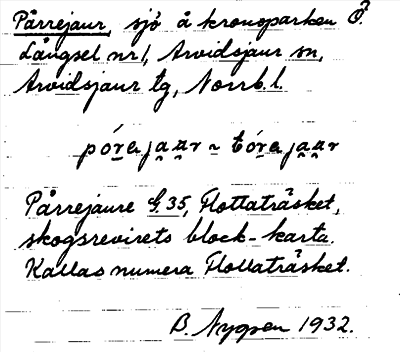 Pårrejaur, sjö å kronoparken Ö.
Långsel nr 1, Arvidsjaur sn,
Arvidsjaur tg, Norrb. l.
pórejaar ~ tórejaar
Pårrejaure G. 35, Flottaträsket,
skogsrevirets block-karta.
Kallas numera Flottaträsket.
B. Nygren 1932.